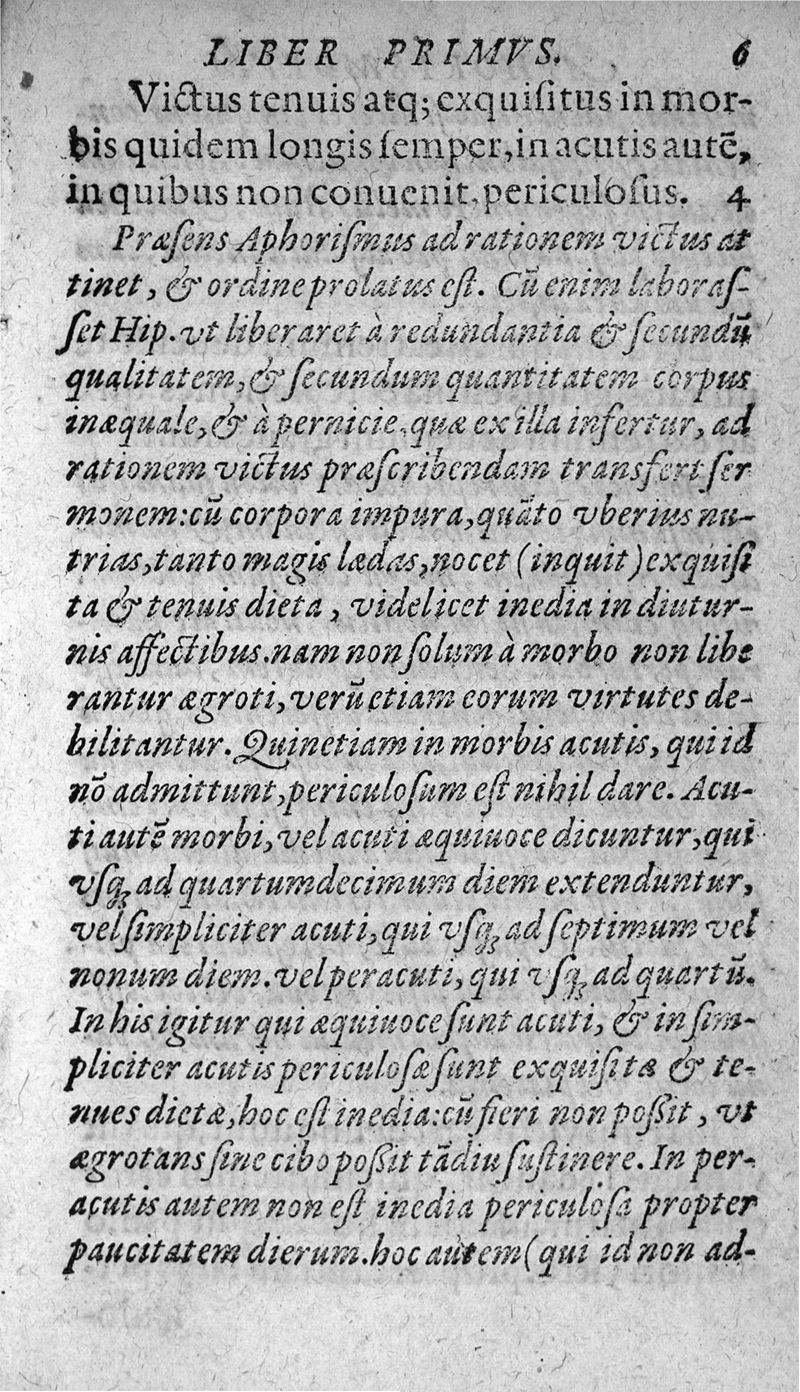 LIBER PRIMVS. 6
Victus tenuis atq; exquiſitus in mor-
bis quidem longis ſemper, in acutis autẽ,
in quibus non conuenit, periculoſus. 4
Præſens Aphoriſmus ad rationem victus at
tinet, & ordine prolatus eſt. Cũ enim laboraſ-
ſet Hip. vt liberaret à redundantia & ſecundũ
qualitatem, & ſecundum quantitatem corpus
inæquale, & à pernicie, quæ ex illa infertur, ad
rationem victus præſcribendam transfert ſer
monem: cũ corpora impura, quãto vberius nu-
trias, tanto magis lædas, nocet (inquit) exquiſi
ta & tenuis dieta, videlicet inedia in diutur-
nis affectibus. nam non ſolum à morbo non libe
rantur ægroti, verũ etiam eorum virtutes de-
bilitantur. Quinetiam in morbis acutis, qui id
nõ admittunt, periculoſum eſt nihil dare. Acu-
ti autẽ morbi, vel acuti æquiuoce dicuntur, qui
vſq; ad quartumdecimum diem extenduntur,
vel ſimpliciter acuti, qui vſq; ad ſeptimum vel
nonum diem. vel peracuti, qui vſq; ad quartũ.
In his igitur qui æquiuoce ſunt acuti, & in ſim-
pliciter acutis periculoſæ ſunt exquiſitæ & te-
nues dietæ, hoc eſt inedia: cũ fieri non poſſit, vt
ægrotans ſine cibo poſſit tãdiu ſuſtinere. In per-
acutis autem non eſt inedia periculoſa propter
paucitatem dierum. hoc autem (qui id non ad-